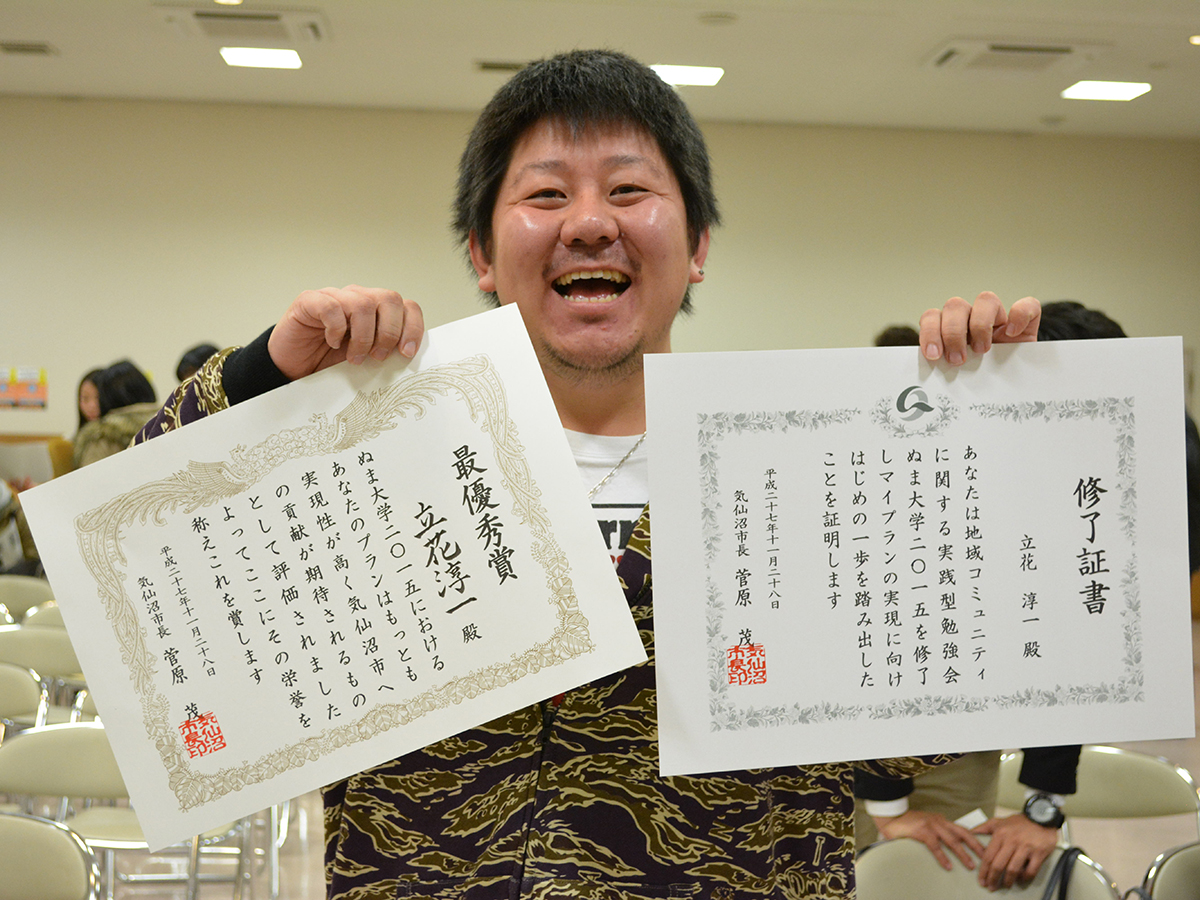 最優秀賞
立花淳一 殿
ぬま大学二〇一五における
あなたのプランはもっとも
実現性が高く気仙沼市へ
の貢献が期待されるもの
として評価されました
よってここにその栄誉を
称えこれを賞します
平成二十七年十一月二十八日
気仙沼市長 菅原 茂
気仙沼
市長印
修了証書
立花 淳一 殿
あなたは地域コミュニティ
に関する実践型勉強会
ぬま大学二〇一五を修了
しマイプランの実現に向け
はじめの一歩を踏み出した
ことを証明します
平成二十七年十一月二十八日
気仙沼市長 菅原 茂
気仙沼
市長印